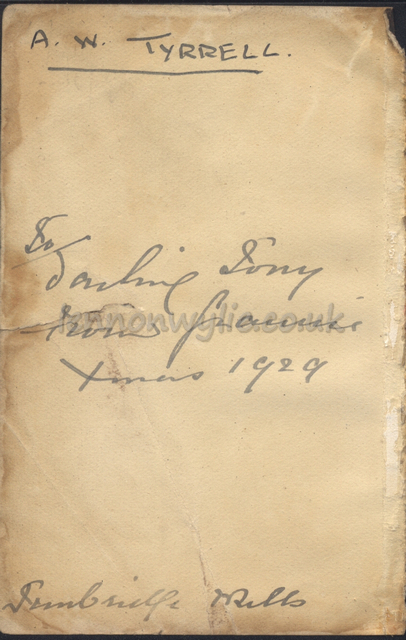 A. W. TYRRELL.
To
Darling Tony
from Grannie
Xmas 1929
lennonwylie.co.uk
Tunbridge Wells